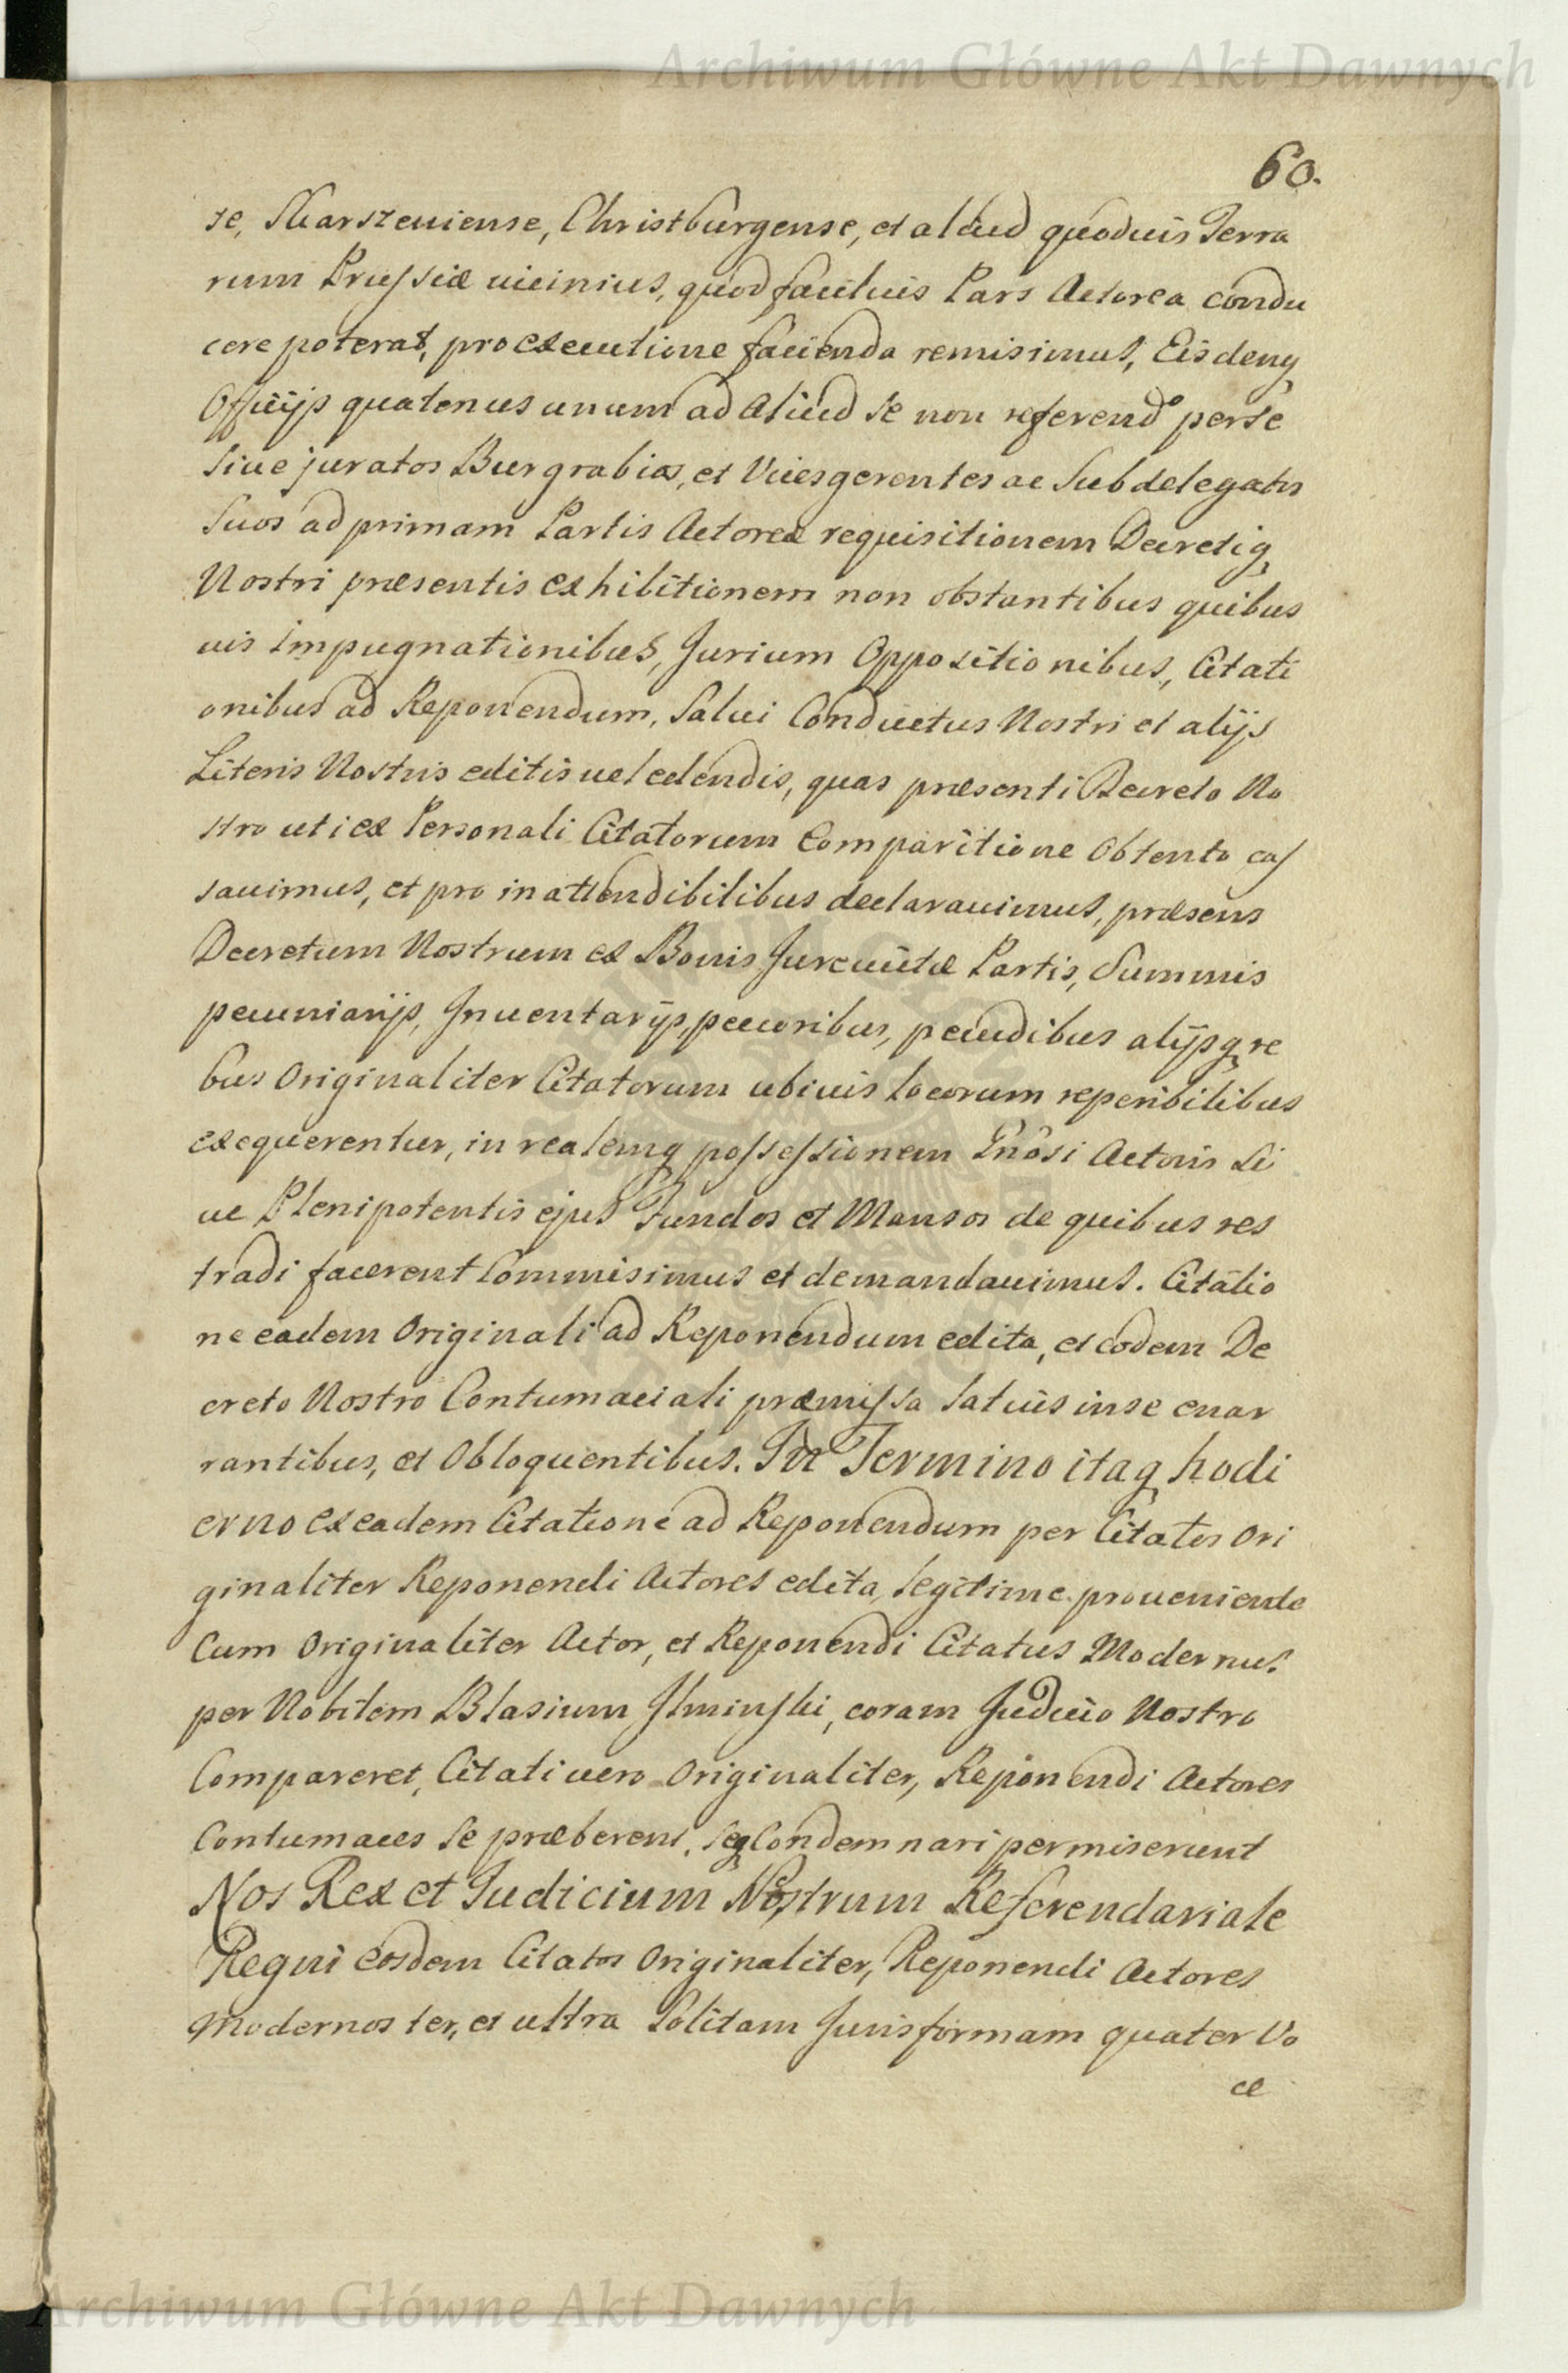 Archiwum Główne Akt Dawnych
60.
se, Skarszeuiense, Christburgense, et aliud quoduis Terra
rum Prussiæ uicinius, quod facilius Pars Actorea condu
cere poterat, pro executione facienda remisimus, Eisdemq
Officijs quatenus unum ad aliud se non referendo per se
siue juratos Burgrabios, et Vicesgerentes ac Subdelegatos
suos ad primam Partis Actoreæ requisitionem Decretiq
Nostri præsentis exhibitionem non obstantibus quibus
uis impugnationibus, Jurium Oppositionibus, Citati
onibus ad Reponendum, Salui Conductus Nostri et alijs
Literis Nostris editis uel edendis, quas præsenti Decreto No
stro uti ex Personali Citatorum Comparitione Obtento cas
sauimus, et pro inattendibilibus declarauimus, præsens
Decretum Nostrum ex Bonis Jureuictæ Partis, Summis
pecuniarijs, Inuentarijs, pecoribus, pecudibus alijsq re
bus Originaliter Citatorum ubiuis locorum reperibilibus
exequerentur, in realemq possessionem Gnôsi Actoris Si
ue Plenipotentis ejus Fundos et Mansos de quibus res
tradi facerent Commisimus et demandauimus. Citatio
ne eadem Originali ad Reponendum edita, et eodem De
creto Nostro Contumaciali præmissa latius in se enar
rantibus, et Obloquentibus. In Termino itaq hodi
erno ex eadem Citatione ad Reponendum per Citatos Ori
ginaliter Reponendi Actores edita, legitime proueniente
Cum Originaliter Actor, et Reponendi Citatus Modernus
per Nobilem Blasium Ilminski, coram Judicio Nostro
Compareret, Citati uero Originaliter, Reponendi Actores
Contumaces se præberent, seq Condemnari permiserunt
Nos Rex et Judicium Nostrum Referendariale
Regni eosdem Citatos Originaliter, Reponendi Actores
modernos ter, et ultra Solitam Juris formam quater Vo
ce
Archiwum Główne Akt Dawnych